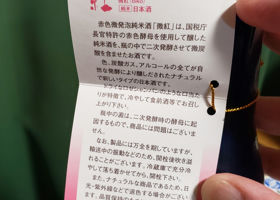 微紅 (BIKO)
純米 日本酒
赤色微発泡純米酒「微紅」は、国税庁
長官特許の赤色酵母を使用して醸した
純米酒を、瓶の中で二次発酵させて微炭
酸を含ませたお酒です。
色、炭酸ガス、アルコールの全てが自
然な発酵により醸しだされたナチュラル
で新しいタイプの日本酒です。
ドライな
のような口当た
りが特徴で、冷やして食前酒等でお召し
上がり下さい。
瓶中の滓は、二次発酵時の酵母に起
因するもので、商品には問題はございま
せん。
なお、製品には万全を期していますが、
輸送中の振動などのため、開栓後吹き溢
れることがございます。冷蔵庫で充分冷
やして落ち着かせてから、開栓下さい。
また、ナチュラルな商品であるため、日
光・紫外線などで退色する場合がござい
ます。品質保持の